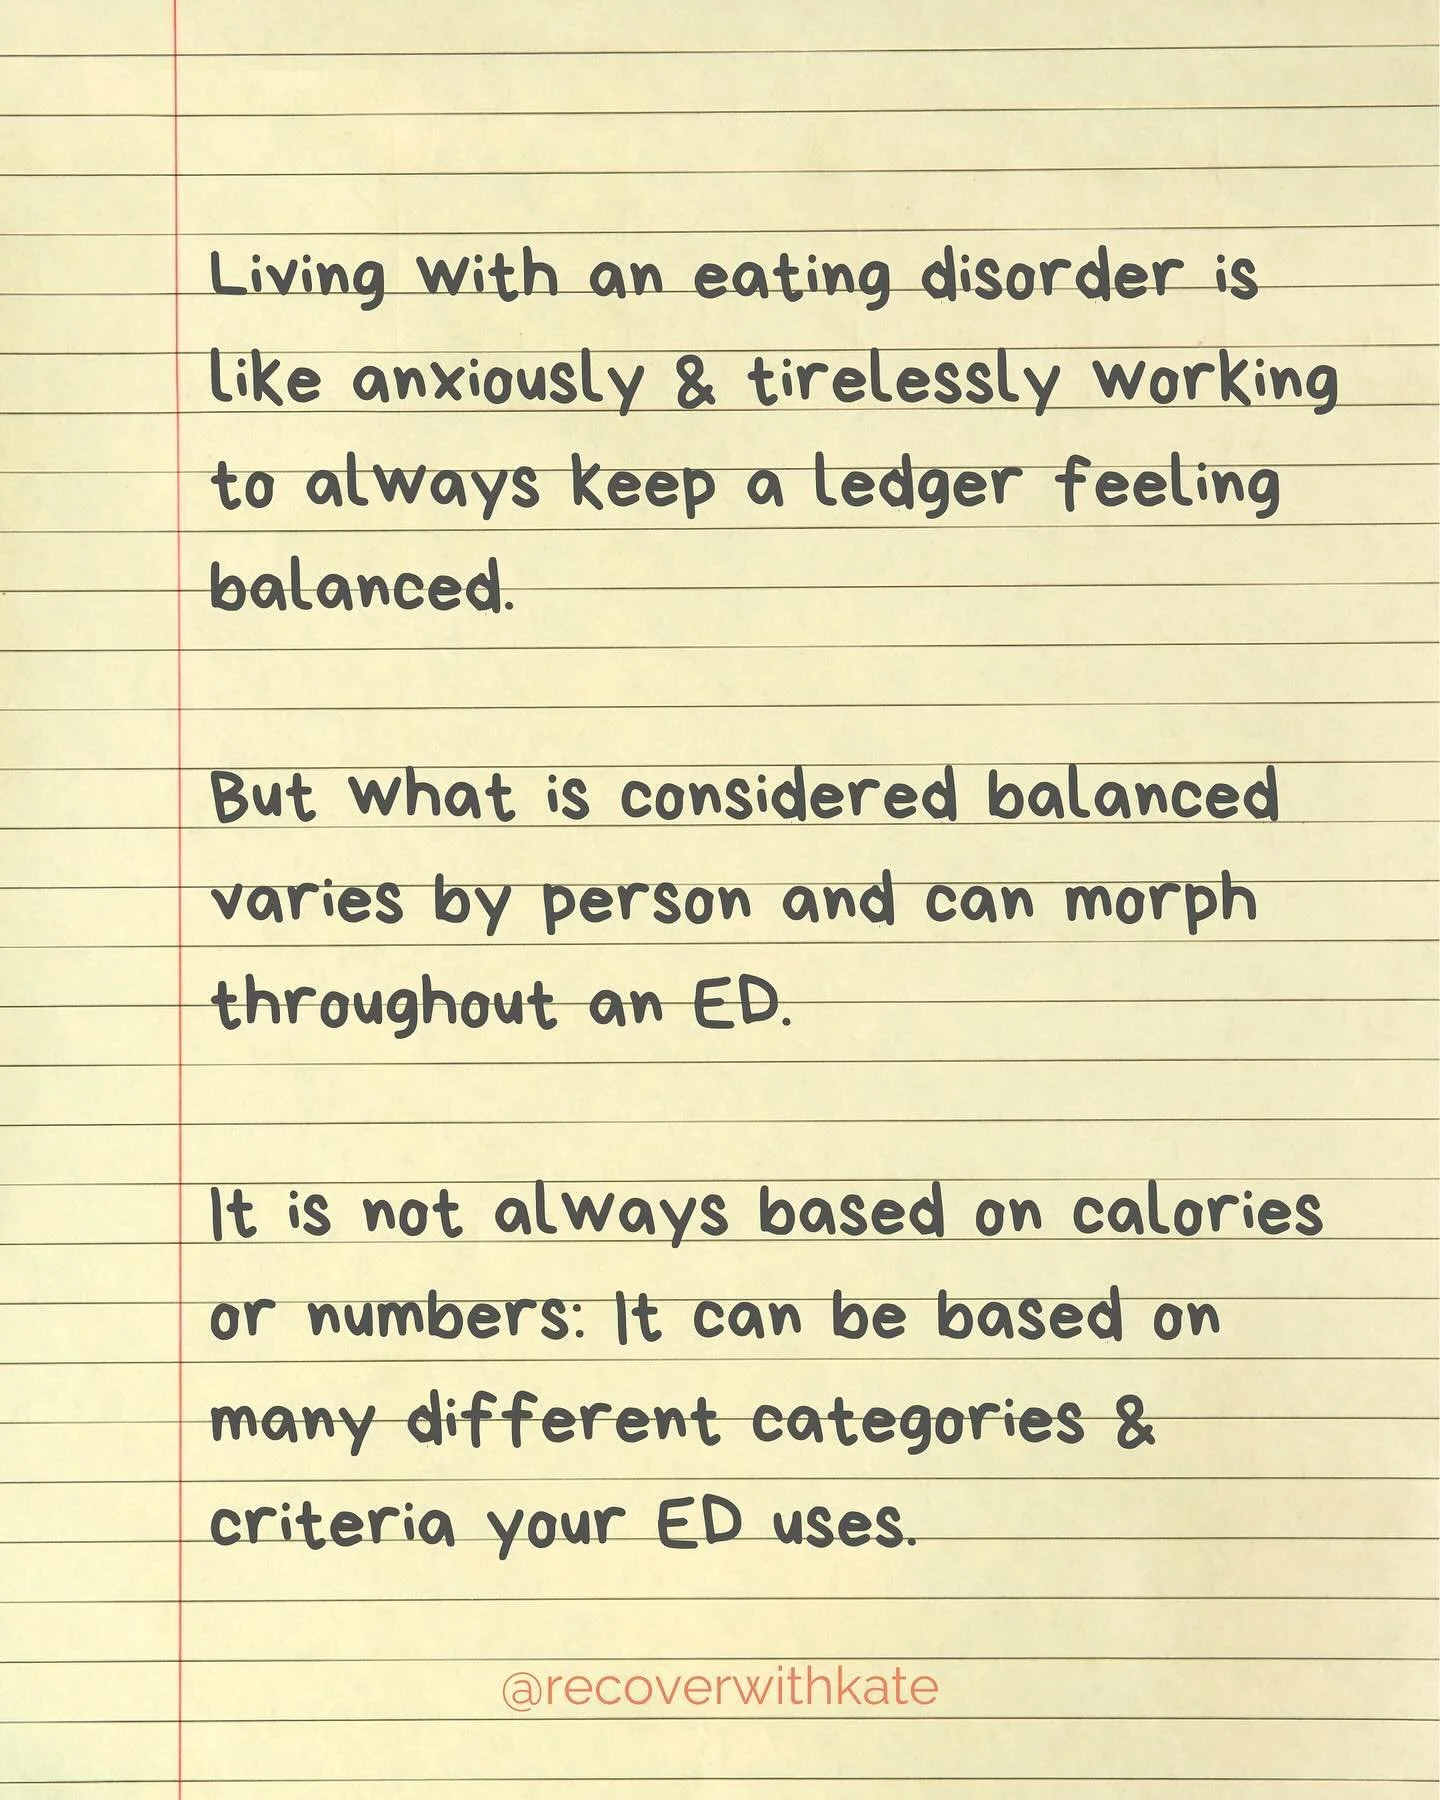 Living with an eating disorder is
like anxiously & tirelessly working
to always keep a ledger feeling
balanced.
But what is considered balanced
varies by person and can morph
throughout an ED.
It is not always based on calories
or numbers: It can be based on
many different categories &
criteria your ED uses.
@recoverwithkate